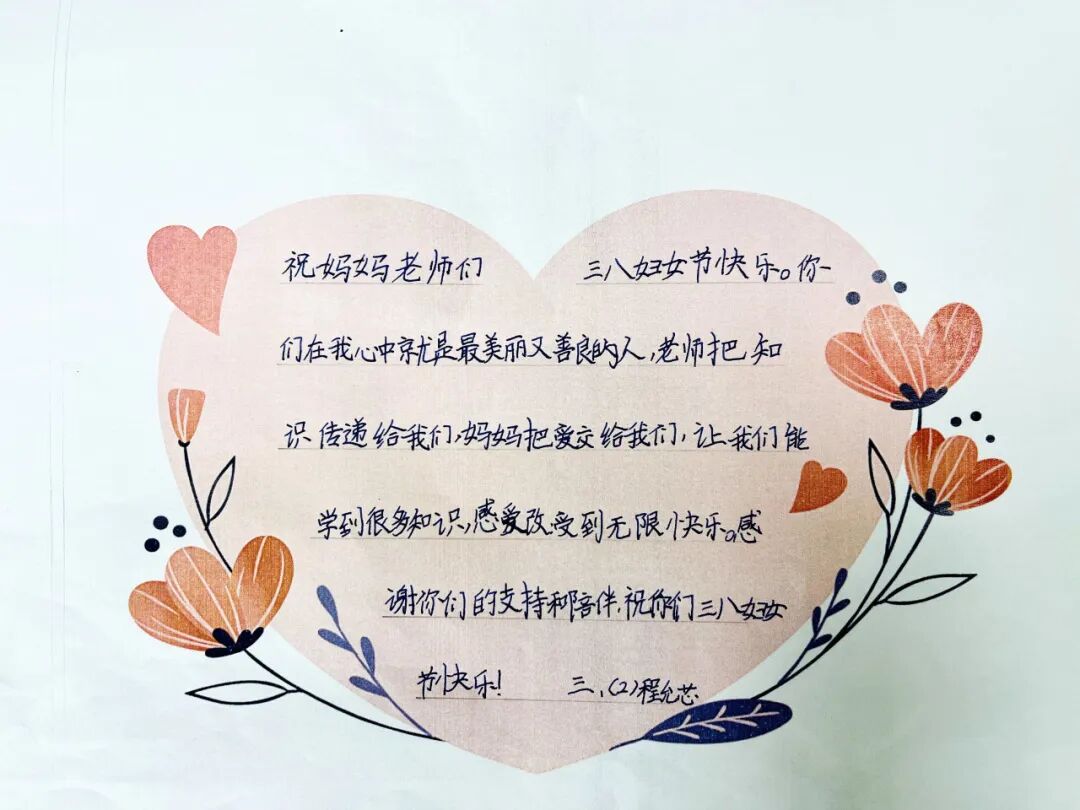 祝妈妈老师们 三八妇女节快乐。你
们在我心中京就是最美丽又善良的人,老师把知
识传递给我们,妈妈把爱交给我们,让我们能
学到很多知识,感爱改受到无限快乐。感
谢你们的支持和陪伴,祝你们三八妇女
节快乐! 三、(2)程允芯